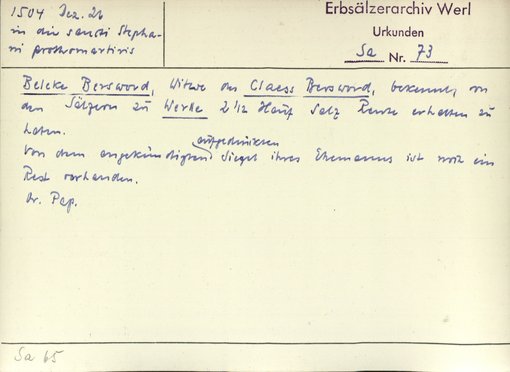 1504 Dez. 26
in die sancti Stepha-
ni prothomartiris
Erbsälzerarchiv Werl
Urkunden
Sa Nr. 73
Beleke Bersword, Witwe des Claess Bersword, bekennt, von
den Sälzern zu Werle 2 1/2 Hauf Salz Rente erhalten zu
haben.
Von dem angekündigten aufgedrückten Siegel ihres Ehemanns ist noch ein
Rest vorhanden.
Or. Pap.
Sa 65